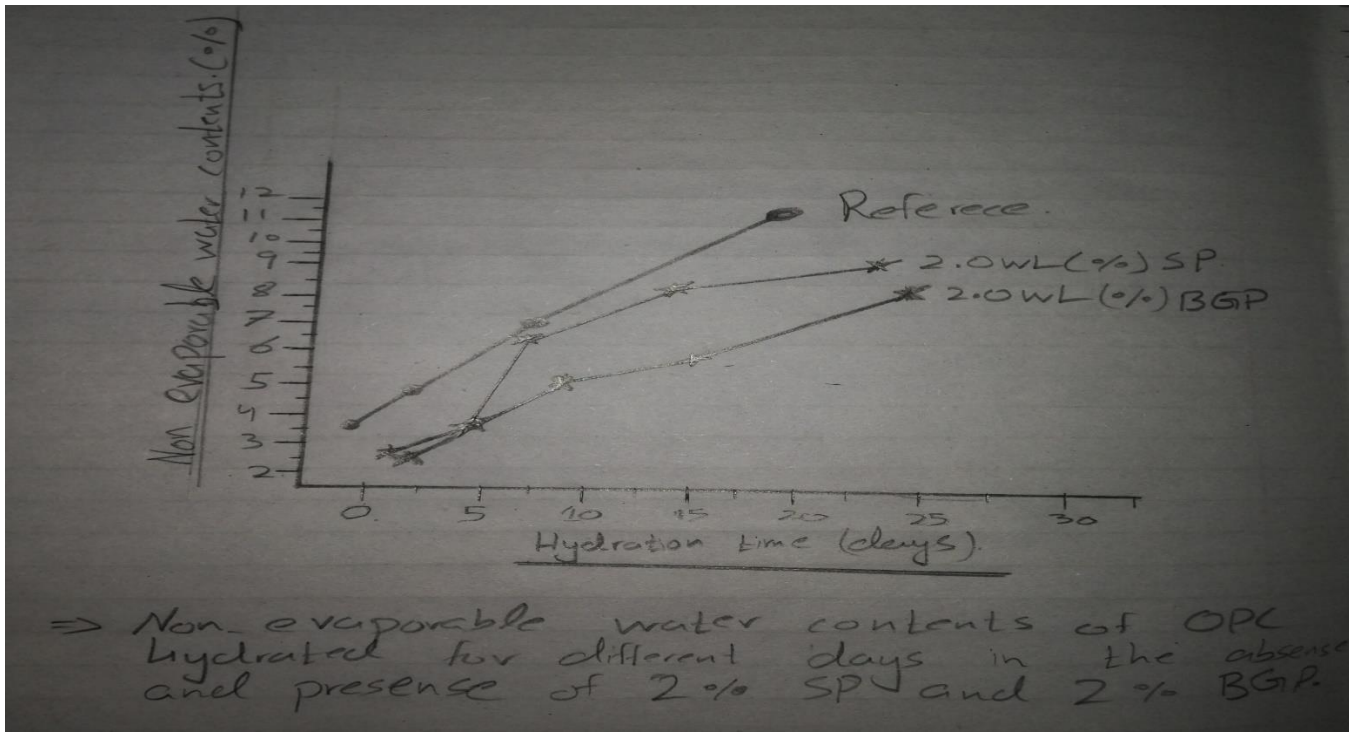 Non evaporable water contents.(%)
12
11
10
9
8
7
6
5
4
3
2
Referece.
2.0wL(%) SP
2.0wL(%) BGP
0. 5 10 15 20 25 30
Hydration time (days).
⇒ Non_evaporable water contents of OPC
hydrated for different days in the absense
and presense of 2% SP and 2% BGP.